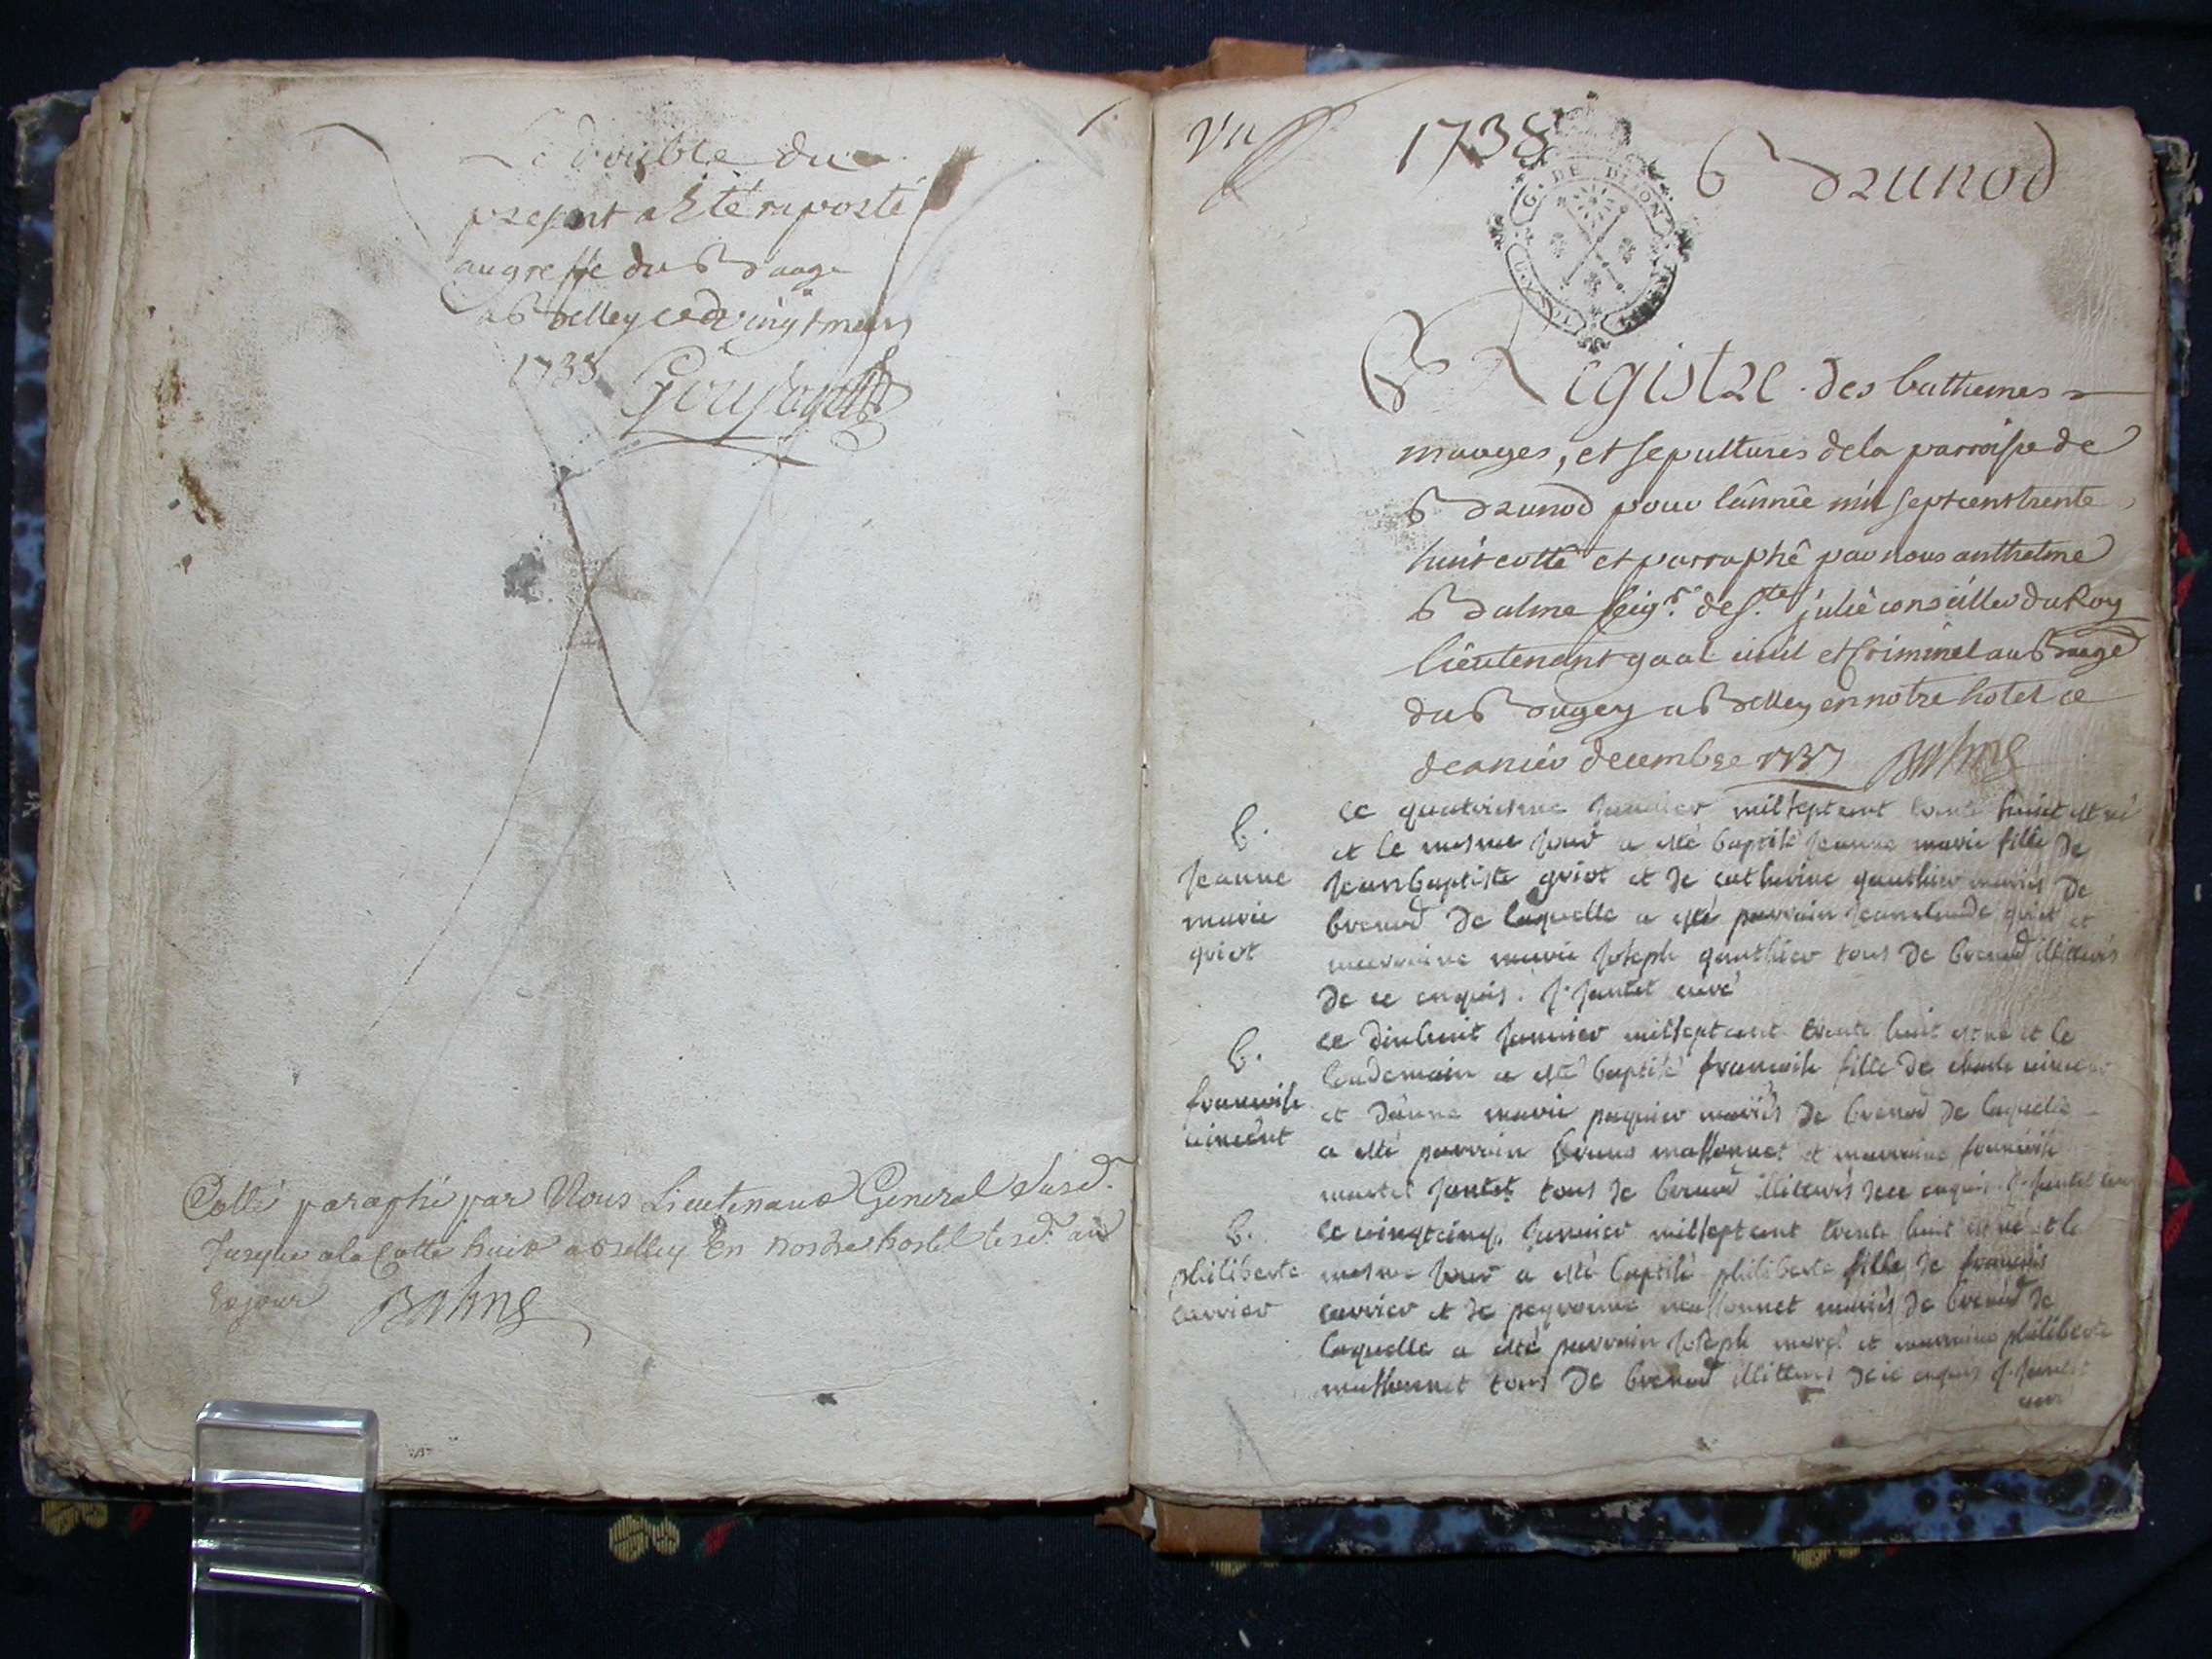 Le double du
present a été raporté
au greffe du Baage
a Belley ce vingt mars
1738
Cotté paraphé par Nous Lieutenant General susd.
Jusque a la Cotte huit a Belley En nostre hostel lesd. an
Et jour Balme
1.
Un
1738
Brunod
G. DE DIJON
Registre des batthemes
mariages, et sepultures de la parroisse de
Brunod pour l'année mil sept cens trente
huit cotté et parraphé par nous anthelme
Balme seigr. de Ste julie conseiller du Roy
lieutenant gnal civil et Criminel au Baage
du Bugey a Belley en notre hotel ce
dernier decembre 1737 Balme
b.
Jeanne
marie
griot
ce quatriesme Janvier mil sept cent trente huict est né
et le mesme Jour a esté baptisé Jeanne marie fille de
Jean baptiste griot et de catherine gauthier mariés de
brenod de laquelle a esté parrain Jean claude griot et
marraine marie Joseph gauthier tous de brenod illiterés
de ce enquis. J. Jantet curé
b.
francoise
vincent
ce dixhuit Janvier mil sept cent trente huit est né et le
lendemain a esté baptisé francoise fille de charle vincent
et d'anne marie paquier mariés de brenod de laquelle
a esté parrain bruno massonnet et marraine francoise
martel Jantet tous de brenod illiterés de ce enquis J. Jantet curé
b.
philiberte
carrier
ce vingtcinq Janvier mil sept cent trente huit est né et le
mesme Jour a esté baptisé philiberte fille de francois
carrier et de peyronne massonnet mariés de brenod de
laquelle a esté parrain Joseph et marraine philiberte
massonnet tous de brenod illiterés de ce enquis J. Jantet
curé